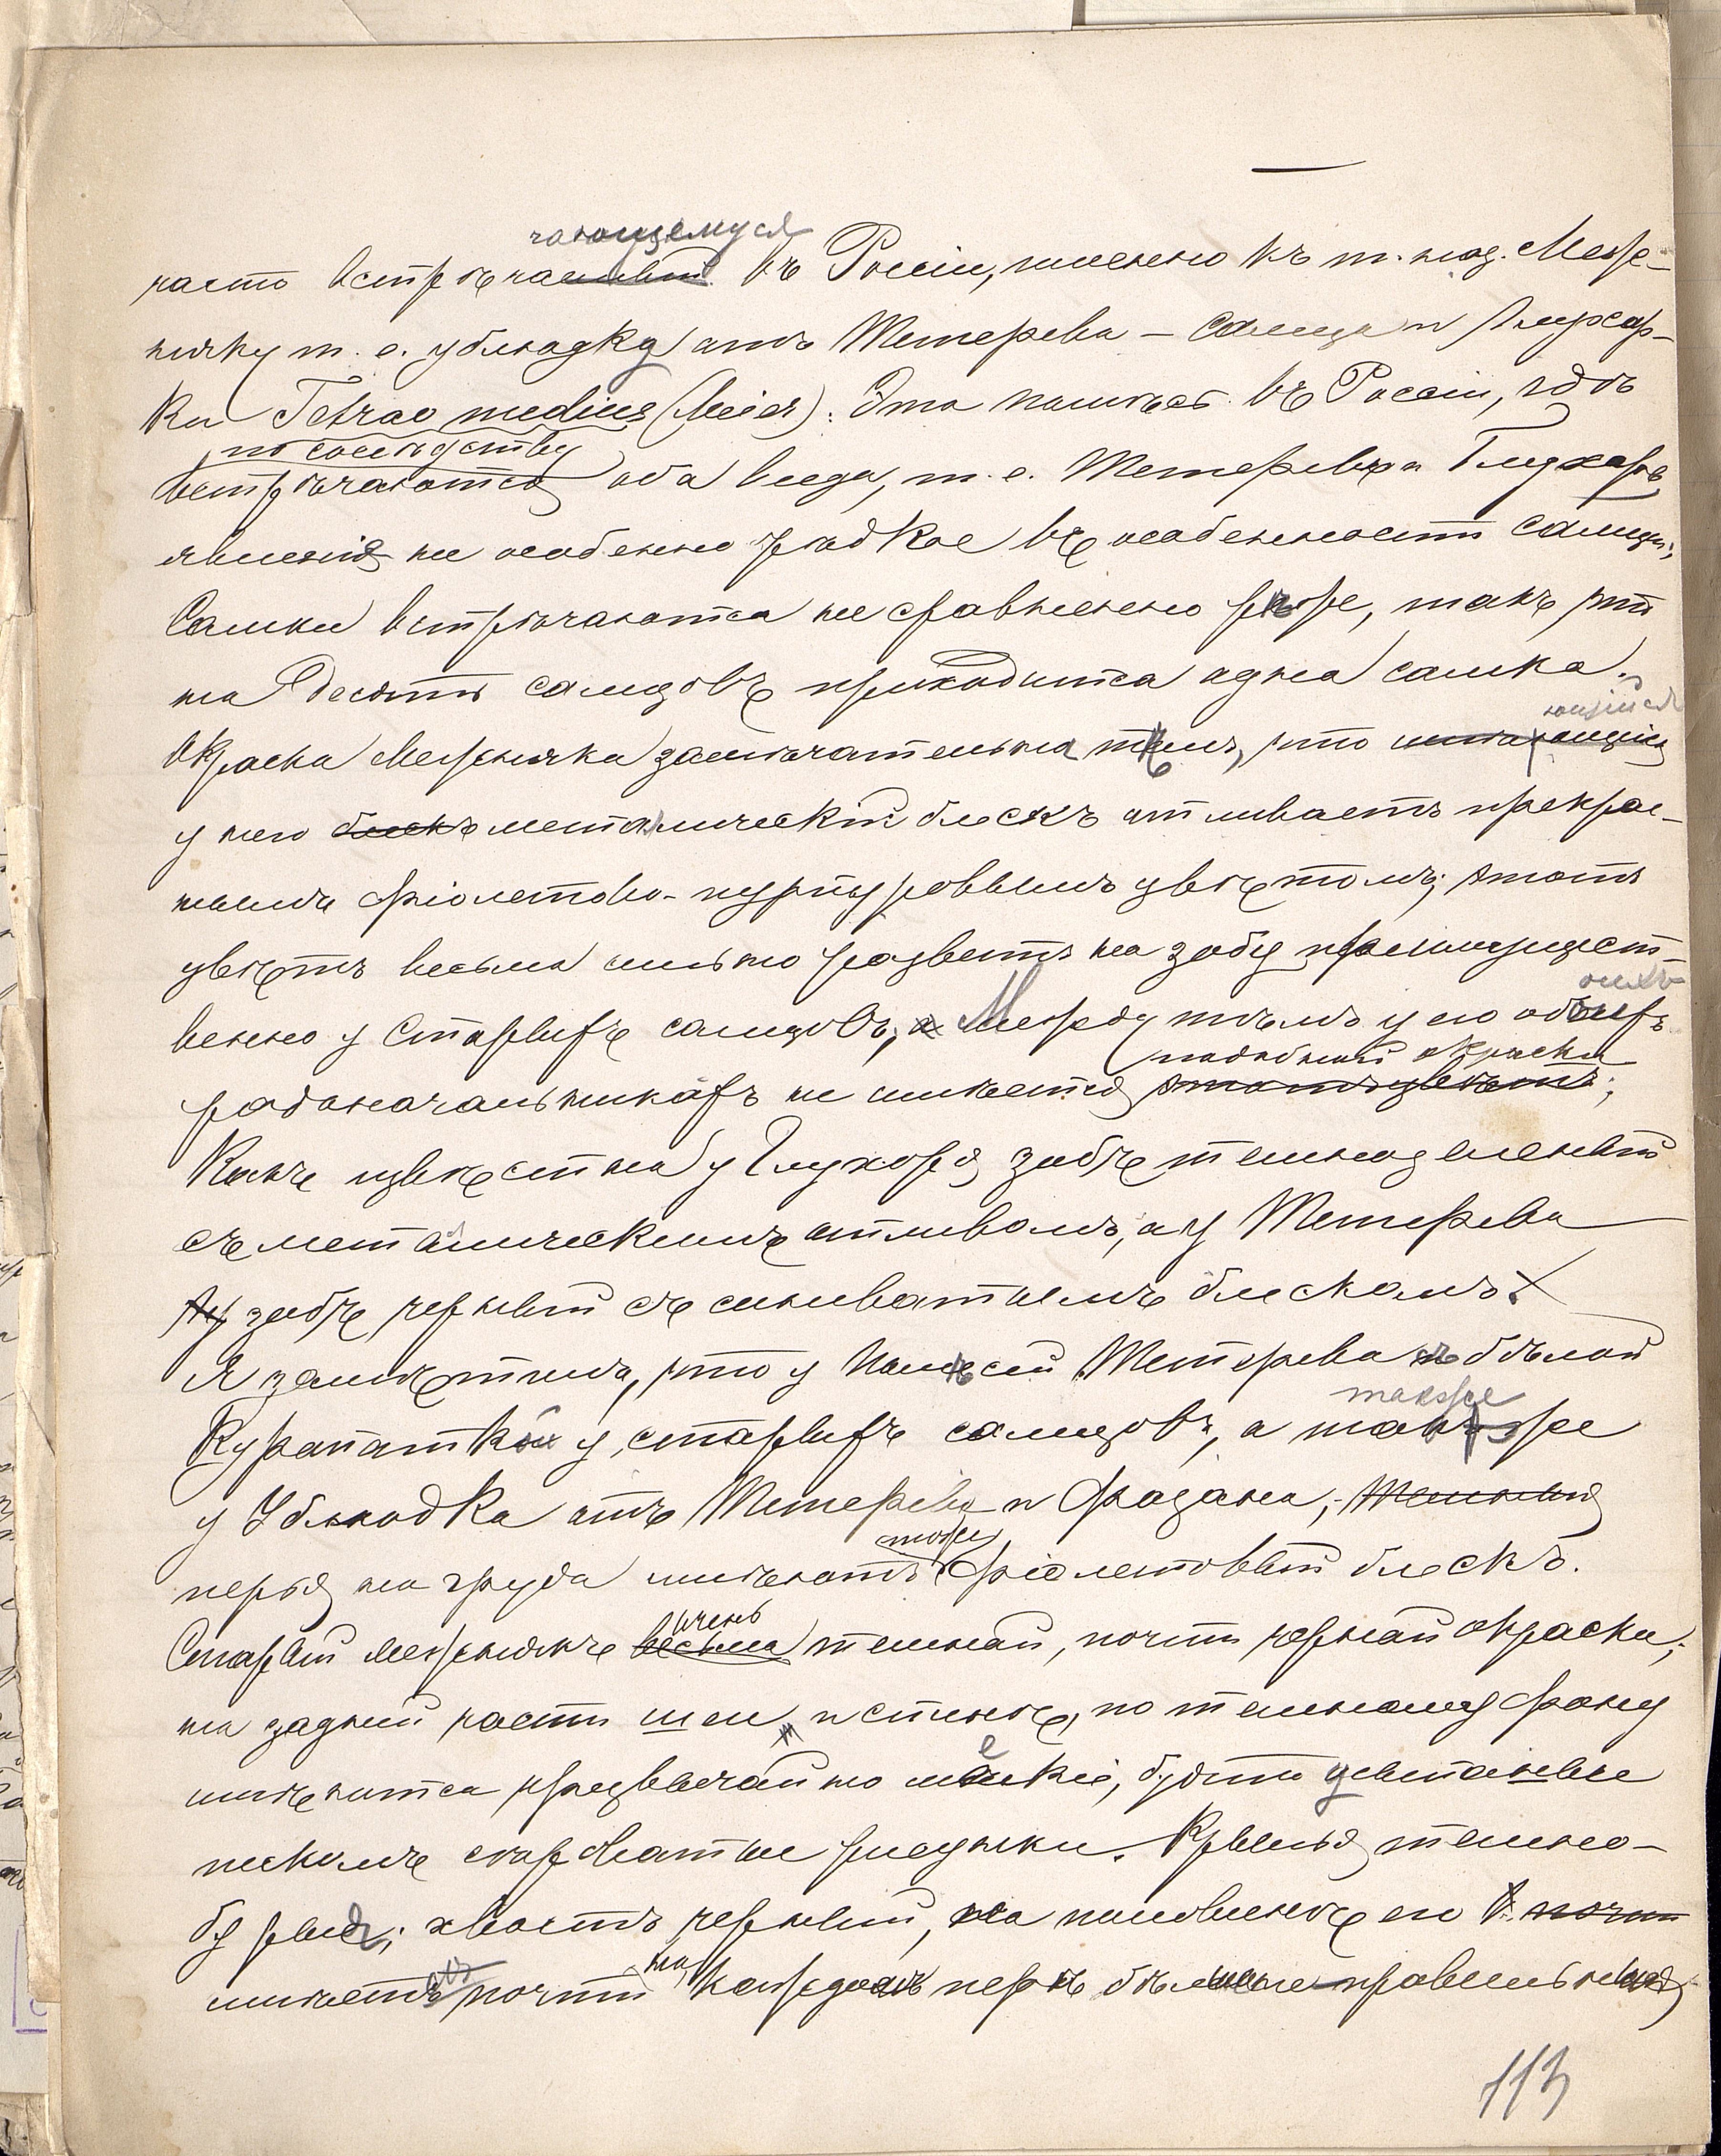 чающемуся
часто встрѣчаемый въ Россіи, именно къ т. наз. Меж-
няку т. е. ублюдку отъ Тетерева – самца и Глухар-
ки Tetrao medius (Meier). Эта помѣсь въ Россіи, гдѣ
по сосѣдству
встрѣчаются оба вида, т. е. Тетеревъ и Глухарь,
явленіе не особенно рѣдкое въ особенности самцы;
Самки встрѣчаются не сравненно рѣже, такъ что
на десять самцовъ приходится одна самка.
ющійся
Окраска Межняка замѣчательна тѣмъ, что имѣющійся
у него блескъ металическій блескъ отливаетъ прекрас-
нымъ фіолетово-пурпуровымъ цвѣтомъ; этотъ
цвѣтъ весьма сильно развитъ на зобу преимущест-
венно у старыхъ самцовъ, а Между тѣмъ у его обоихъ
подобной окраски
родоначальникахъ не имѣется этотъ цвѣтъ;
Какъ извѣстно у Глухаря зобъ темнозеленый
съ металическимъ отливомъ, а у Тетерева
зобъ черный съ синеватымъ блескомъ.
Я замѣтилъ, что у помѣсей Тетерева съ бѣлой
также
Куропаткой у старыхъ самцовъ, а также
у Ублюдка отъ Тетерева и Фазана, темныя
тоже
перья на груди имѣютъ фіолетовый блескъ.
очень
Старый Межнякъ весьма темной, почти черной окраски;
на задней части шеи и спинѣ, по темному фону
имѣются чрезвычайно мелкіе, будто
пескомъ сѣроватые рисунки. Крылья темно-
бурыя; хвостъ черный, на половинѣ его почти
на
имѣетъ почти каждомъ перѣ бѣлые
113